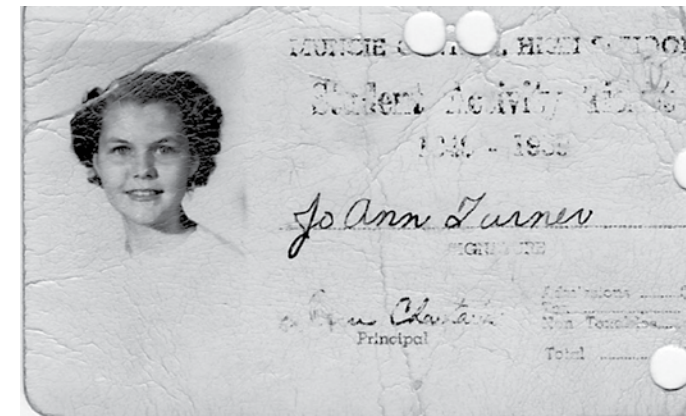 MUNCIE CENTRAL HIGH SCHOOL
Student Activity Tickets
Jo Ann Turner
SIGNATURE
Principal
Admissions
Tax
Non Taxable
Total